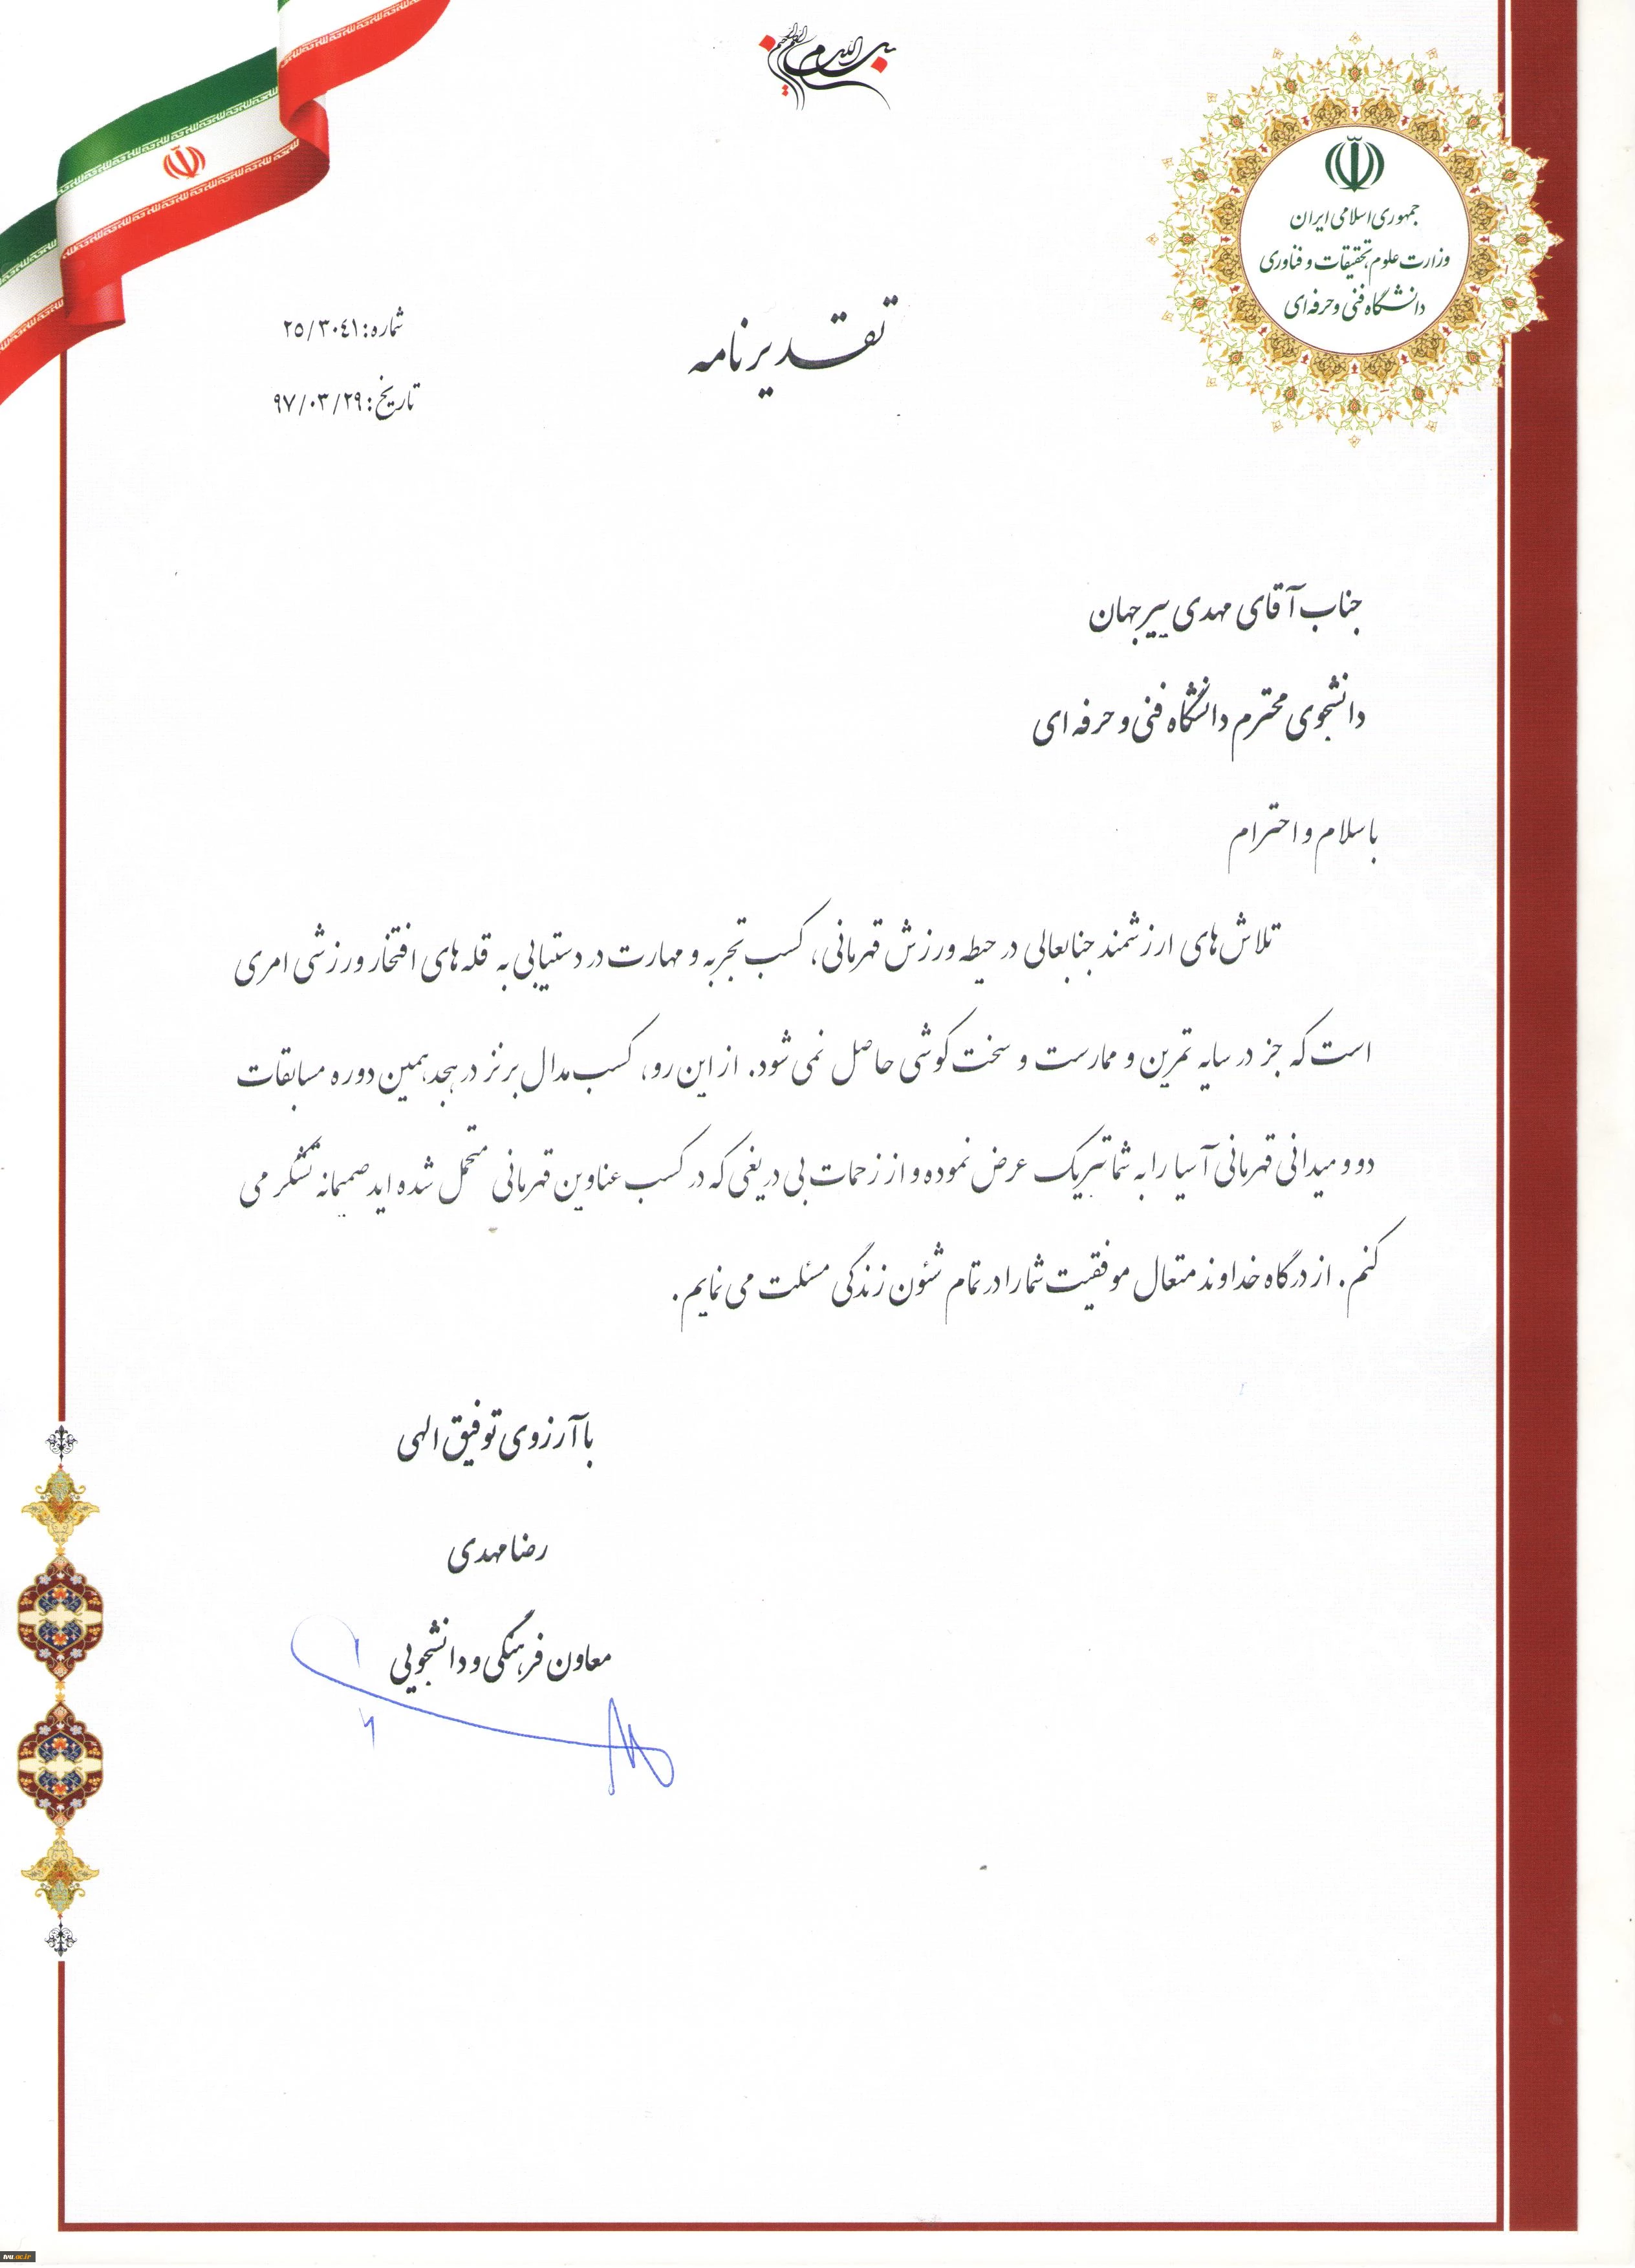 بسم الله الرحمن الرحیم
جمهوری اسلامی ایران
وزارت علوم، تحقیقات و فناوری
دانشگاه فنی و حرفه‌ای
شماره: ۲۵/۳۰۴۱
تاریخ: ۹۷/۰۳/۲۹
تقدیرنامه
جناب آقای مهدی پیرجهان
دانشجوی محترم دانشگاه فنی و حرفه ای
با سلام و احترام
تلاش های ارزشمند جنابعالی در حیطه ورزش قهرمانی، کسب تجربه و مهارت در دستیابی به قله های افتخار ورزشی امری
است که جز در سایه تمرین و ممارست و سخت کوشی حاصل نمی شود. از این رو، کسب مدال برنز در هجدهمین دوره مسابقات
دو و میدانی قهرمانی آسیا را به شما تبریک عرض نموده و از زحمات بی دریغی که در کسب عناوین قهرمانی متحمل شده اید صمیمانه تشکر می
کنم. از درگاه خداوند متعال موفقیت شما را در تمام شئون زندگی مسئلت می نمایم.
با آرزوی توفیق الهی
رضا مهدی
معاون فرهنگی و دانشجویی
tvu.ac.ir